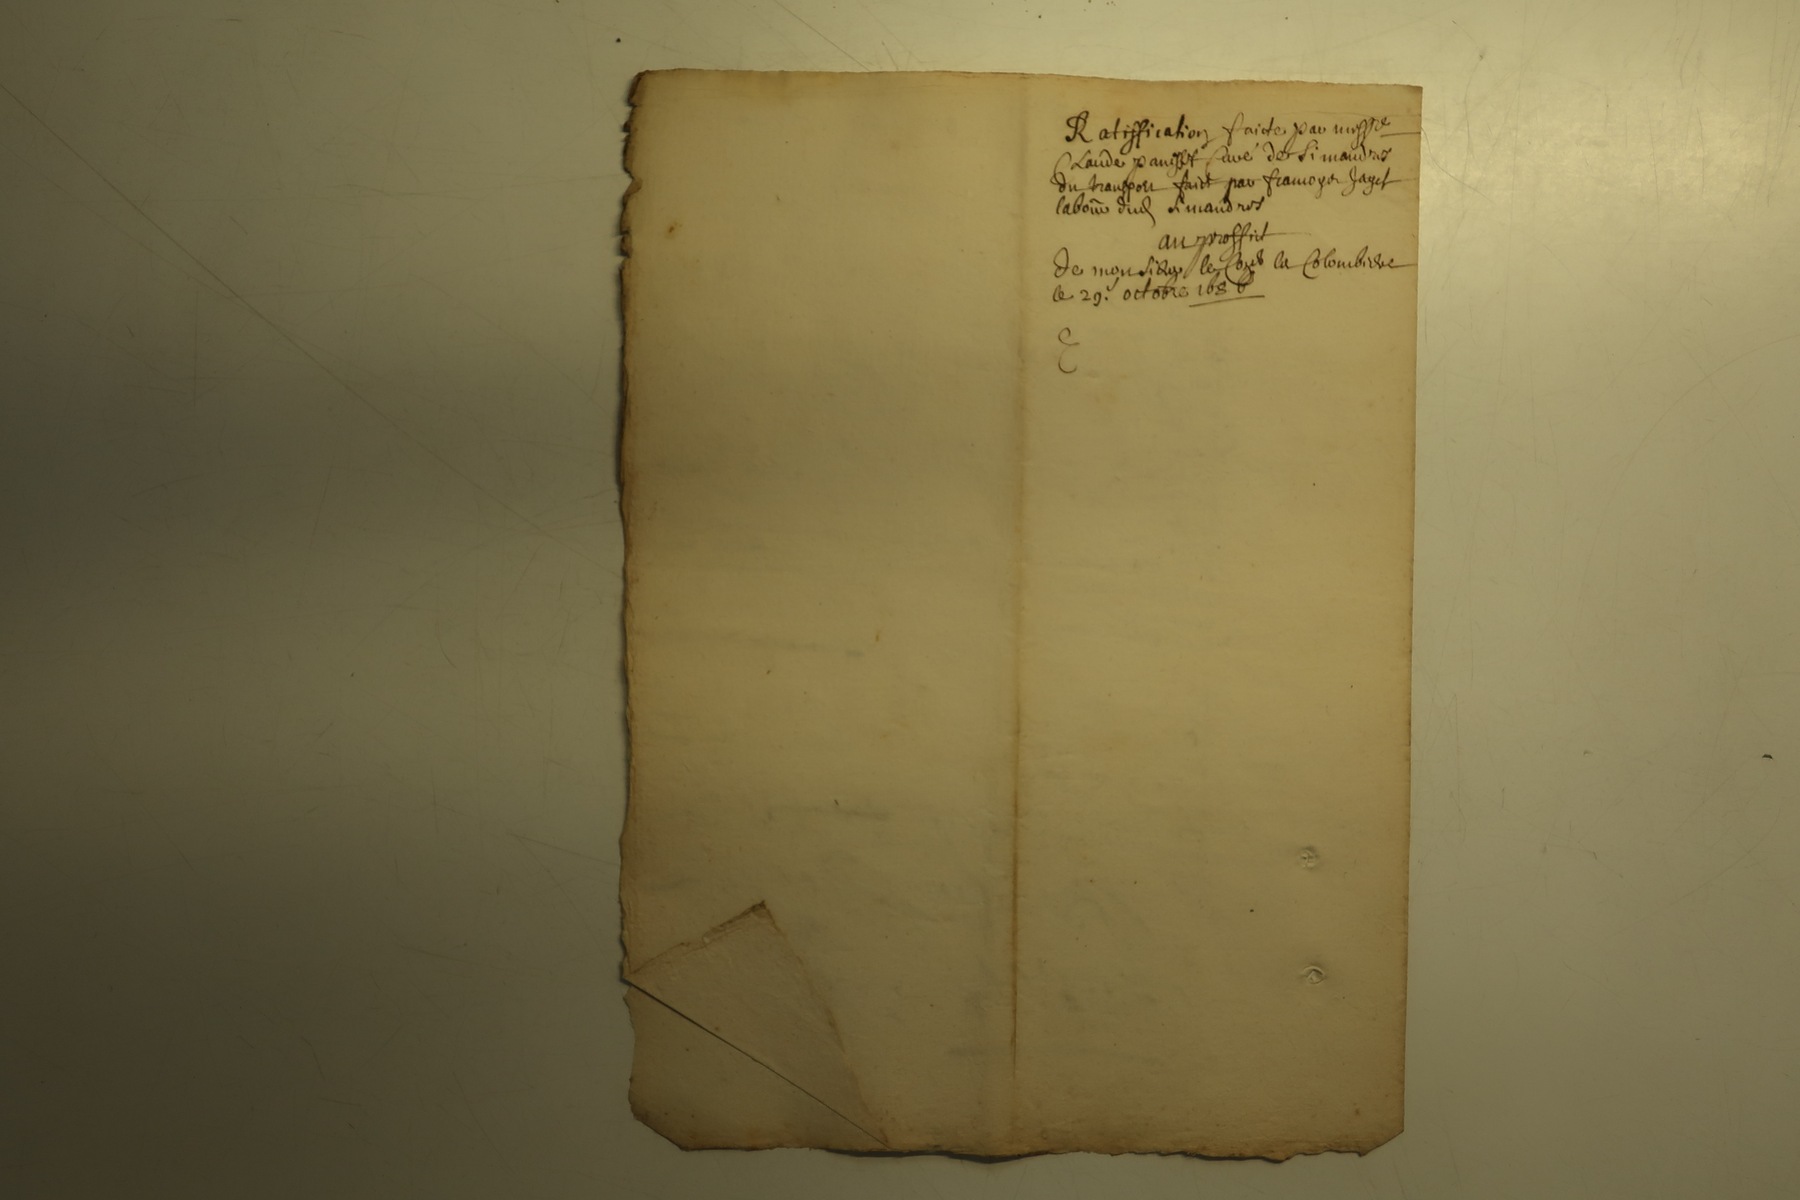 Ratiffication faicte par messre
Claude curé de Simandres
du transport faict par francoyse Jaget
labour dud Simandres
au proffit
de monsieur la Colombiere
le 29e octobre 1686